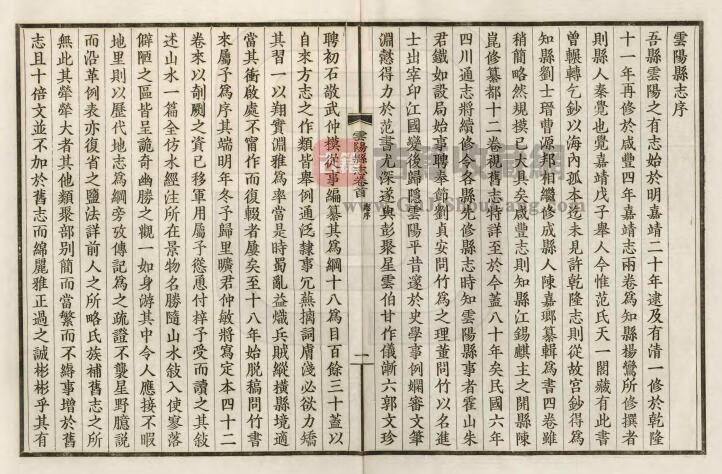 雲陽縣志序
吾縣雲陽之有志始於明嘉靖二十年逮及有清一修於乾隆
十一年再修於咸豐四年嘉靖志兩卷為知縣楊鸞所修撰者
則縣人秦覺也覺嘉靖戊子舉人今惟范氏天一閣藏有此書
曾輾轉乞鈔以海內孤本迄未見許乾隆志則從故宮鈔得為
知縣劉士瑨曹源邦相繼修成縣人陳嘉瑯纂輯為書四卷雖
稍簡略然規模已大具矣咸豐志則知縣江錫麒主之開縣陳
崑修纂都十二卷視舊志特詳至於今蓋八十年矣民國六年
四川通志將續修令各縣先修縣志時知雲陽縣事者霍山朱
君鐵如設局始事聘奉節劉貞安問竹為之理董問竹以名進
士出宰印江國變後歸隱雲陽平昔邃於史學事例嫻審文筆
淵懿得力於范書尤深遂與彭聚星雲伯甘作儀漸六郭文珍
聘初石敢武仲撲從事編纂其為綱十八為目百餘三十蓋以
自來方志之作類皆舉例通泛隸事冗蕪摛詞膚淺必欲力矯
其習一以翔實淵雅為率當是時蜀亂益熾兵賊縱橫縣境適
當其衝啟處不甯作而復輟者屢矣至十八年始脫稿問竹書
來屬予為序其端明年冬予歸里曠君仲敏將寫定本四十二
卷來以剞劂之資已移軍用屬予慫恿付梓予受而讀之其敍
述山水一篇全仿水經注所在景物名勝隨山水敍入使寥落
僻陋之區皆呈詭奇幽勝之觀一如身游其中令人應接不暇
地里則以歷代地志為綱旁攷傳記為之疏證不襲星野臆說
而沿革例表亦復省之鹽法詳前人之所略氏族補舊志之所
無此其犖犖大者其他類聚部別簡而當繁而不縟事增於舊
志且十倍文並不加於舊志而綿麗雅正過之誠彬彬乎其有
雲陽縣志卷首
序
一
古籍收藏網